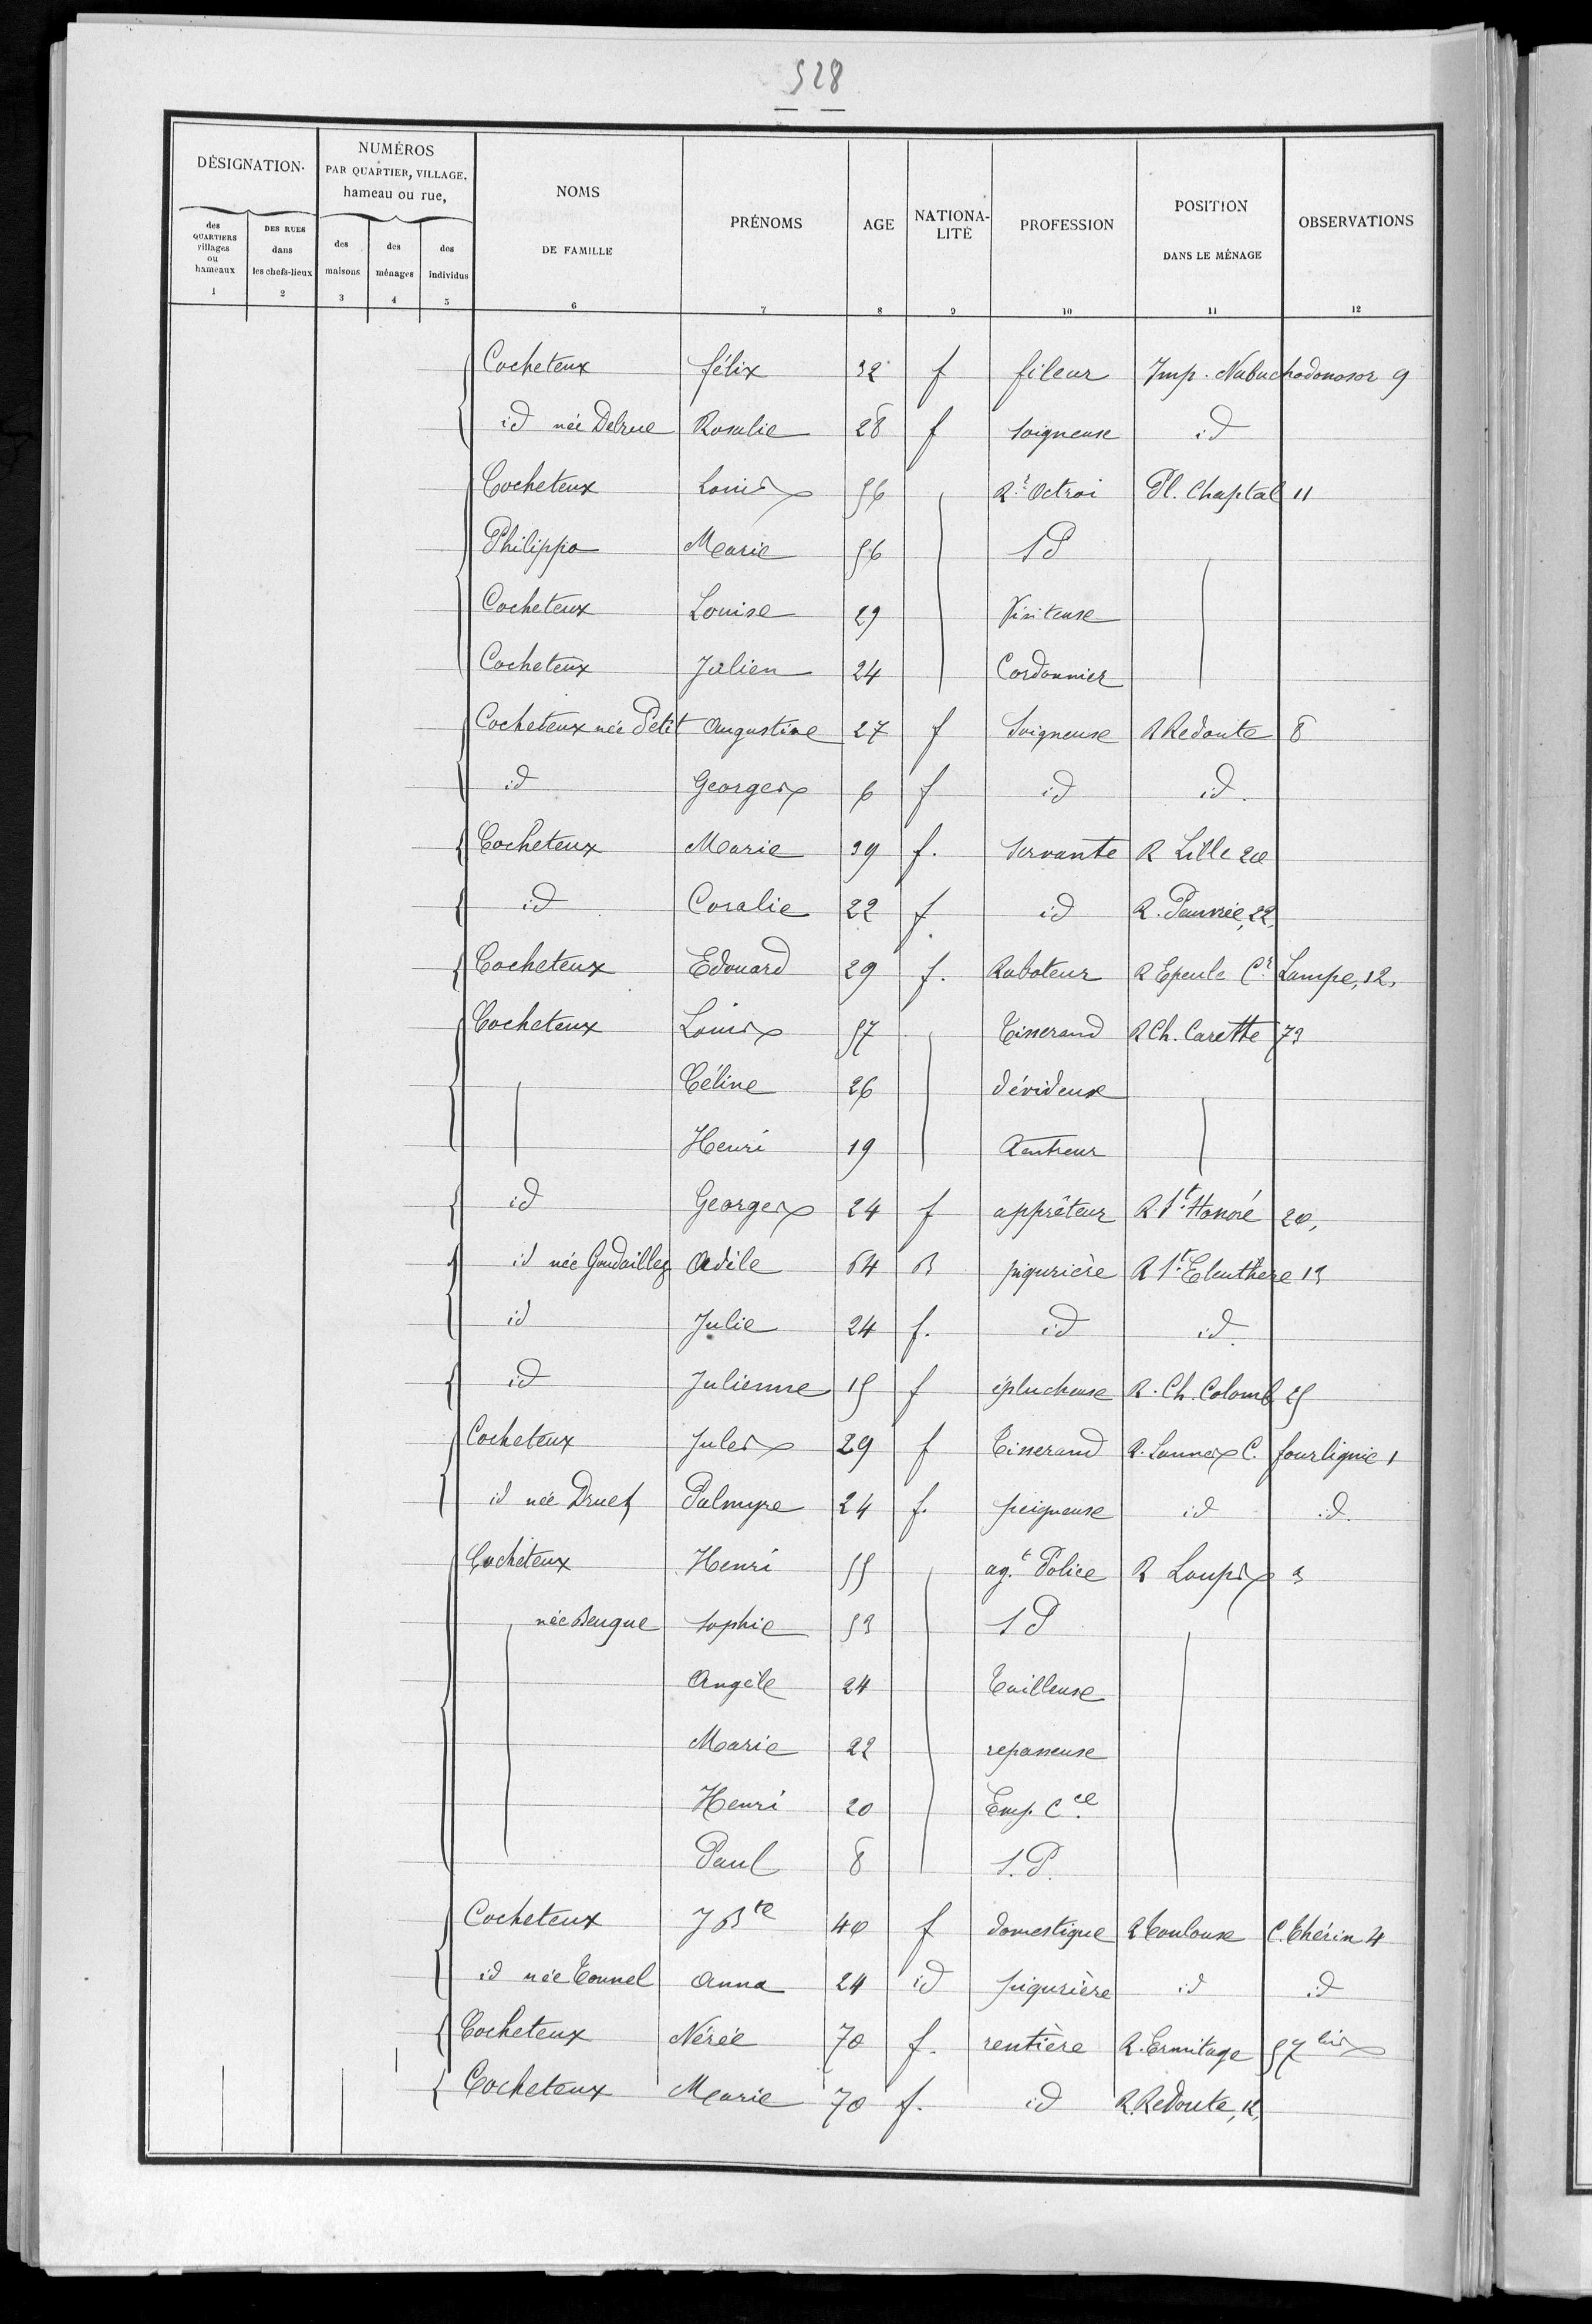 528
DÉSIGNATION. NUMÉROS PAR QUARTIER, VILLAGE, hameau ou rue, NOMS DE FAMILLE PRÉNOMS AGE NATIONALITÉ PROFESSION POSITION DANS LE MÉNAGE OBSERVATIONS
des QUARTIERS villages ou hameaux DES RUES dans les chefs-lieux des maisons des ménages des individus
1 2 3 4 5 6 7 8 9 10 11 12
Cocheteux félix 32 f fileur Imp. Nabuchodonosor 9
id née Delrue Rosalie 28 f soigneuse id
Cocheteux Louis 56 Rr Octroi Pl. Chaptal 11
Philippo Marie 56 SP
Cocheteux Louise 29 Visiteuse
Cocheteux Julien 24 Cordonnier
Cocheteux née Petit Augustine 27 f Soigneuse R Redoute 8
id Georges 6 f id id.
Cocheteux Marie 39 f. Servante R Lille 20
id Coralie 22 f id R. Pauvrée, 22,
Cocheteux Edouard 29 f. Raboteur R Epeule Cr Lampe, 12,
Cocheteux Louis 57 Tisserand R Ch. Carette 73
Céline 26 dévideuse
Henri 19 Rentreur
id Georges 24 f apprêteur R St Honoré 20,
id née Gaudaillez Adèle 64 B piqurière R St Eleuthère 13
id Julie 24 f. id id.
id Julienne 15 f éplucheuse R. Ch. Colomb, 25
Cocheteux Jules 29 f Tisserand R. Lannes C. fourlignie 1
id née Druef Palmyre 24 f. peigneuse id id.
Cocheteux Henri 55 ag.t Police R Loups 3
née Beugue Sophie 53 SP
Angèle 24 Tailleuse
Marie 22 repasseuse
Henri 20 Emp. Cce
Paul 8 S.P.
Cocheteux J Bte 40 f domestique R Toulouse C. Chérin 4
id née Tounel Anna 24 id piqurière id id
Cocheteux Nérée 70 f. rentière R. Ermitage 57 bis
Cocheteux Marie 70 f. id R. Redoute, 12,